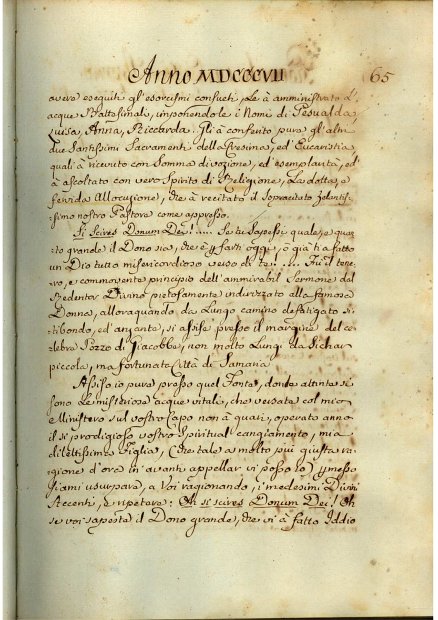 Anno MDCCCVII
65
avere eseguiti gl'esorcismi consueti, Le à amministrato l'
acque Battesimali, imponendole i Nomi di Gesualda
Luisa, Anna, Riccarda. Gli à conferito pure gl'altri
due Santissimi Sacramenti della Cresima, ed' Eucaristia
quali à ricevuto con Somma divozione, ed' esemplarità, ed
à ascoltato con vero Spirito di Religione, La dotta, e
fervida Allocuzione, che à recitato il Sopracitato Zelantis=
simo nostro Pastore come appresso.
Si Scires Donum Dei! ..... Se tu Sapessi quale, e quan=
to grande è il Dono sia, che è farti oggi, o già ti a fatto
un Dio tutto misericordioso verso di te! ... Fu il tene=
ro, e commovente principio dell'ammirabil Sermone del
Redentor Divino pietosamente indirizzato alla famosa
Donna, alloraquando da Lungo camino defatigato si
tibondo, ed' anzante, si assise presso il margine del ce
lebre Pozzo di Giacobbe, non molto Lungi da Sichar
piccola, ma fortunata Città di Samaria
Assiso io pure presso quel Fonte, donde attinte si
sono Le misteriose acque vitali, che versate col mio
Ministero sul vostro Capo non à quasi, operato anno
il sì prodigioso vostro Spiritual cangiamento, mia
dilettissima Figlia, (che tale a molto più giusta ra
gione d'ora in avanti appellar vi posso io) permesso
siami usurpare, a Voi ragionando, i medesimi Divini
Accenti, e ripetere: Oh si scires Donum Dei! Oh
se voi sapeste il Dono grande, che vi à fatto Iddio